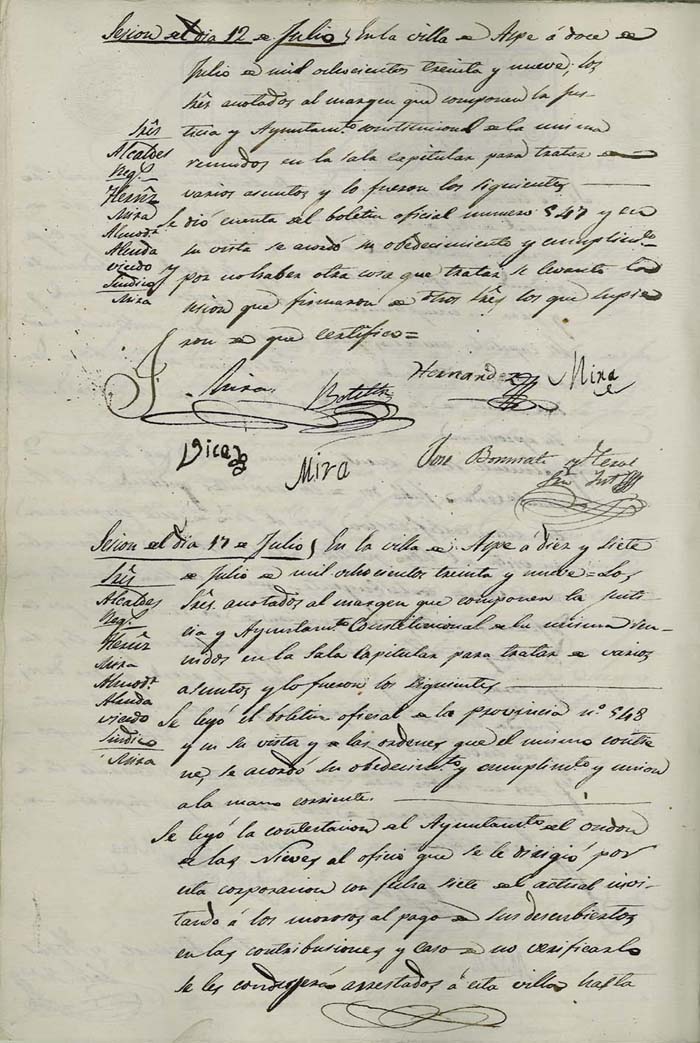 Sesion del dia 12 de Julio, En la villa de Aspe á doce de
Julio de mil ochocientos treinta y nueve; los
Sres. anotados al margen que componen la jus-
ticia y Ayuntamto. constitucional de la misma
reunidos en la Sala Capitular para tratar de
varios asuntos y lo fueron los siguientes
Sres.
Alcaldes
Regs.
Hernz
Mira
Almodr.
Alenda
Vicedo
Sindico
Mira
Se dió cuenta del boletin oficial numero 547 y en
su vista se acordó su obedecimiento y cumplimto.
y por no haber otra cosa que tratar se levantó la
sesion que firmaron de otros Sres. los que supie
ron de que certifico=
Mira Botella Hernandez Mira
Vicedo Mira José
Sesion del dia 17 de Julio, En la villa de Aspe á diez y siete
de Julio de mil ochocientos treinta y nueve=Los
Sres. anotados al margen que componen la justi-
cia y Ayuntamto. Constitucional de la misma reu-
nidos en la Sala Capitular para tratar de varios
asuntos y lo fueron los siguientes
Sres.
Alcaldes
Regs.
Hernz
Mira
Almodr.
Alenda
Vicedo
Sindico
Mira
Se leyó el boletin oficial de la provincia nº. 548
y en su vista y de las ordenes que el mismo contie
ne, se acordó su obedecimto. y cumplimto. y union
a la mano corriente.
Se leyó la contestacion del Ayuntamto. del ondon
de las Nieves al oficio que se le dirigió por
esta corporacion con fecha siete del actual invi-
tando á los morosos al pago de sus descubiertos
en las contribusiones y caso de no verificarlo
se les conduserá arrestados á esta villa hasta